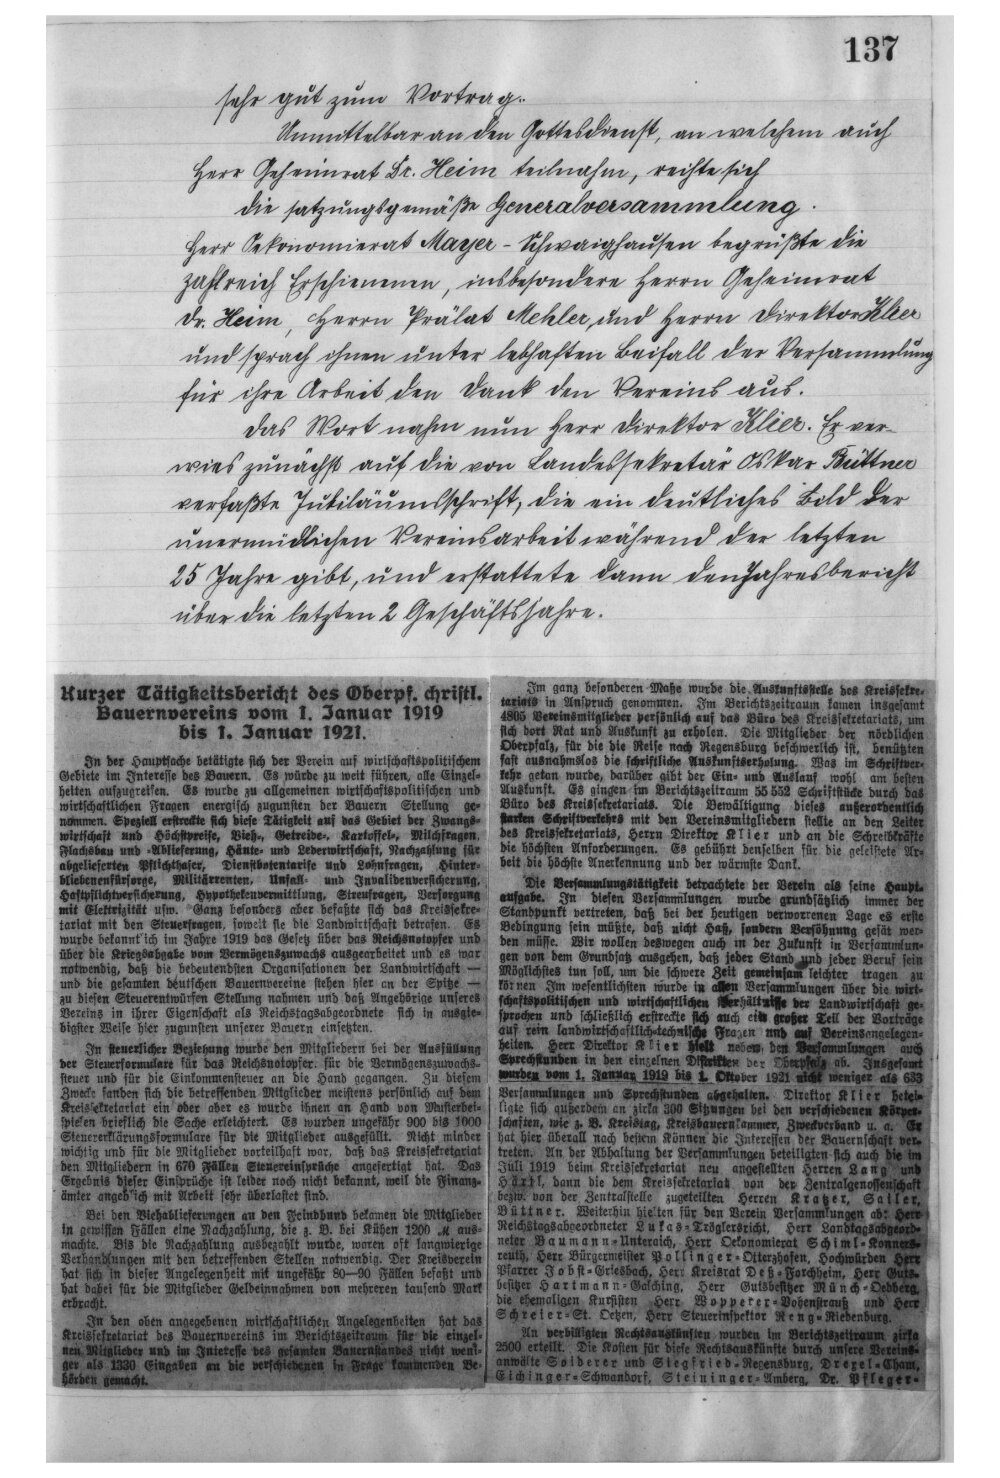 137
sehr gut zum Vortrag.
Unmittelbar an den Gottesdienst, an welchem auch
Herr Geheimrat Dr. Heim teilnahm, reihte sich
die satzungsgemäße Generalversammlung.
Herr Oekonomierat Mayer-Schwaighausen begrüßte die
zahlreich Erschienenen, insbesondere Herrn Geheimrat
Dr. Heim, Herrn Prälat Mehler, und Herrn Direktor Klier
und sprach ihnen unter lebhaften Beifall der Versammlung
für ihre Arbeit den Dank den Vereins aus.
Das Wort nahm nun Herr Direktor Klier. Er ver-
wies zunächst auf die von Landessekretär Oskar Büttner
verfaßte Jubiläumsschrift, die ein deutliches Bild der
unermüdlichen Vereinsarbeit während der letzten
25 Jahre gibt, und erstattete dann den Jahresbericht
über die letzten 2 Geschäftsjahre.
Kurzer Tätigkeitsbericht des Oberpf. christl.
Bauernvereins vom 1. Januar 1919
bis 1. Januar 1921.
In der Hauptsache betätigte sich der Verein auf wirtschaftspolitischem
Gebiete im Interesse des Bauern. Es würde zu weit führen, alle Einzel-
heiten aufzugreifen. Es wurde zu allgemeinen wirtschaftspolitischen und
wirtschaftlichen Fragen energisch zugunsten der Bauern Stellung ge-
nommen. Speziell erstreckte sich diese Tätigkeit auf das Gebiet der Zwangs-
wirtschaft und Höchstpreise, Vieh-, Getreide-, Kartoffel-, Milchfragen,
Flachsbau und -Ablieferung, Häute- und Lederwirtschaft, Nachzahlung für
abgelieferten Pflichthafer, Dienstbotentarife und Lohnfragen, Hinter-
bliebenenfürsorge, Militärrenten, Unfall- und Invalidenversicherung,
Haftpflichtversicherung, Hypothekenvermittlung, Streufragen, Versorgung
mit Elektrizität usw. Ganz besonders aber befaßte sich das Kreissekre-
tariat mit den Steuerfragen, soweit sie die Landwirtschaft betrafen. Es
wurde bekanntlich im Jahre 1919 das Gesetz über das Reichsnotopfer und
über die Kriegsabgabe vom Vermögenszuwachs ausgearbeitet und es war
notwendig, daß die bedeutendsten Organisationen der Landwirtschaft —
und die gesamten deutschen Bauernvereine stehen hier an der Spitze —
zu diesen Steuerentwürfen Stellung nahmen und daß Angehörige unseres
Vereins in ihrer Eigenschaft als Reichstagsabgeordnete sich in ausgie-
bigster Weise hier zugunsten unserer Bauern einsetzten.
In steuerlicher Beziehung wurde den Mitgliedern bei der Ausfüllung
der Steuerformulare für das Reichsnotopfer, für die Vermögenszuwachs-
steuer und für die Einkommensteuer an die Hand gegangen. Zu diesem
Zwecke fanden sich die betreffenden Mitglieder meistens persönlich auf dem
Kreissekretariat ein oder aber es wurde ihnen an Hand von Musterbei-
spielen brieflich die Sache erleichtert. Es wurden ungefähr 900 bis 1000
Steuererklärungsformulare für die Mitglieder ausgefüllt. Nicht minder
wichtig und für die Mitglieder vorteilhaft war, daß das Kreissekretariat
den Mitgliedern in 670 Fällen Steuereinsprüche angefertigt hat. Das
Ergebnis dieser Einsprüche ist leider noch nicht bekannt, weil die Finanz-
ämter angeblich mit Arbeit sehr überlastet sind.
Bei den Viehablieferungen an den Feindbund bekamen die Mitglieder
in gewissen Fällen eine Nachzahlung, die z. B. bei Kühen 1200 M aus-
machte. Bis die Nachzahlung ausbezahlt wurde, waren oft langwierige
Verhandlungen mit den betreffenden Stellen notwendig. Der Kreisverein
hat sich in dieser Angelegenheit mit ungefähr 80—90 Fällen befaßt und
hat dabei für die Mitglieder Geldeinnahmen von mehreren tausend Mark
erbracht.
In den oben angegebenen wirtschaftlichen Angelegenheiten hat das
Kreissekretariat des Bauernvereins im Berichtszeitraum für die einzel-
nen Mitglieder und im Interesse des gesamten Bauernstandes nicht weni-
ger als 1330 Eingaben an die verschiedenen in Frage kommenden Be-
hörden gemacht.
Im ganz besonderen Maße wurde die Auskunftsstelle des Kreissekre-
tariats in Anspruch genommen. Im Berichtszeitraum kamen insgesamt
4805 Vereinsmitglieder persönlich auf das Büro des Kreissekretariats, um
sich dort Rat und Auskunft zu erholen. Die Mitglieder der nördlichen
Oberpfalz, für die die Reise nach Regensburg beschwerlich ist, benützten
fast ausnahmslos die schriftliche Auskunftserholung. Was im Schriftver-
kehr getan wurde, darüber gibt der Ein- und Auslauf wohl am besten
Auskunft. Es gingen im Berichtszeitraum 55 552 Schriftstücke durch das
Büro des Kreissekretariats. Die Bewältigung dieses außerordentlich
starken Schriftverkehrs mit den Vereinsmitgliedern stellte an den Leiter
des Kreissekretariats, Herrn Direktor Klier und an die Schreibkräfte
die höchsten Anforderungen. Es gebührt denselben für die geleistete Ar-
beit die höchste Anerkennung und der wärmste Dank.
Die Versammlungstätigkeit betrachtete der Verein als seine Haupt-
aufgabe. In diesen Versammlungen wurde grundsätzlich immer der
Standpunkt vertreten, daß bei der heutigen verworrenen Lage es erste
Bedingung sein müßte, daß nicht Haß, sondern Versöhnung gesät wer-
den müsse. Wir wollen deswegen auch in der Zukunft in Versammlun-
gen von dem Grundsatz ausgehen, daß jeder Stand und jeder Beruf sein
Möglichstes tun soll, um die schwere Zeit gemeinsam leichter tragen zu
können. Im wesentlichsten wurde in allen Versammlungen über die wirt-
schaftspolitischen und wirtschaftlichen Verhältnisse der Landwirtschaft ge-
sprochen und schließlich erstreckte sich auch ein großer Teil der Vorträge
auf rein landwirtschaftlich-technische Fragen und auf Vereinsangelegen-
heiten. Herr Direktor Klier hielt neben den Versammlungen auch
Sprechstunden in den einzelnen Distrikten der Oberpfalz ab. Insgesamt
wurden vom 1. Januar 1919 bis 1. Oktober 1921 nicht weniger als 633
Versammlungen und Sprechstunden abgehalten. Direktor Klier betei-
ligte sich außerdem an zirka 300 Sitzungen bei den verschiedenen Körper-
schaften, wie z. B. Kreistag, Kreisbauernkammer, Zweckverband u. a. Er
hat hier überall nach bestem Können die Interessen der Bauernschaft ver-
treten. An der Abhaltung der Versammlungen beteiligten sich auch die im
Juli 1919 beim Kreissekretariat neu angestellten Herren Lang und
Härtl, dann die dem Kreissekretariat von der Zentralgenossenschaft
bezw. von der Zentralstelle zugeteilten Herren Kratzer, Sailer,
Büttner. Weiterhin hielten für den Verein Versammlungen ab: Herr
Reichstagsabgeordneter Lukas-Tröglersricht, Herr Landtagsabgeord-
neter Baumann-Unteraich, Herr Oekonomierat Schiml-Konners-
reuth, Herr Bürgermeister Pollinger-Otterzhofen, Hochwürden Herr
Pfarrer Jobst-Griesbach, Herr Kreisrat Deß-Forchheim, Herr Guts-
besitzer Hartmann-Galching, Herr Gutsbesitzer Münch-Oedberg,
die ehemaligen Kursisten Herr Wopperer-Vohenstrauß und Herr
Schreier-St. Oetzen, Herr Steuerinspektor Reng-Riedenburg.
An verbilligten Rechtsauskünften wurden im Berichtszeitraum zirka
2500 erteilt. Die Kosten für diese Rechtsauskünfte durch unsere Vereins-
anwälte Soiderer und Siegfried-Regensburg, Drexel-Cham,
Eichinger-Schwandorf, Steininger-Amberg, Dr. Pfleger-